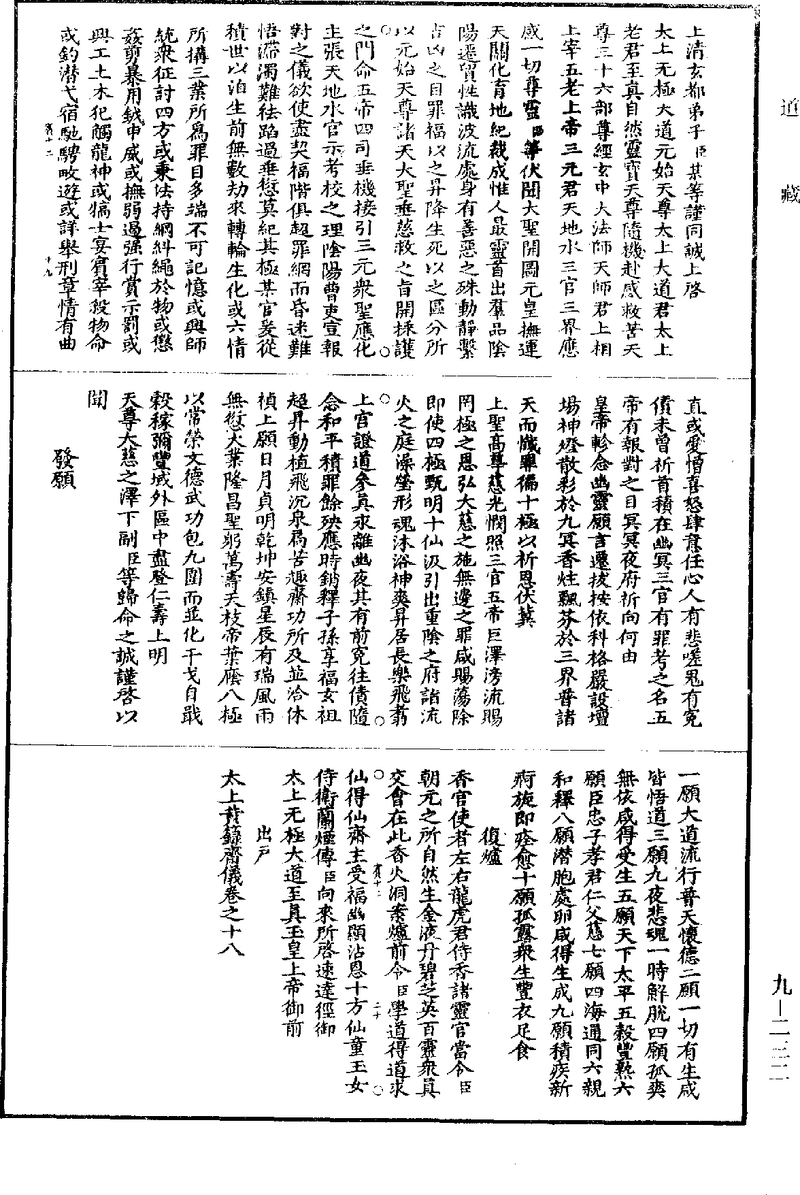 道藏
上清玄都弟子臣某等謹同誠上啓
太上无極大道元始天尊太上大道君太上
老君至真自然靈寶天尊隨機赴感救苦天
尊三十六部尊經玄中大法師天師君上相
上宰五老上帝三元君天地水三官三界應
感一切尊靈臣等伏聞大聖開圖元皇撫運
天關化育地紀裁成惟人最靈首出羣品陰
陽遷貿性識波流處身有善惡之殊動靜繫
吉凶之目罪福以之昇降生死以之區分所
以元始天尊諸天大聖垂慈救之旨開拯護
之門命五帝四司垂機接引三元衆聖應化
主張天地水官示考校之理陰陽曹吏宣報
對之儀欲使盡契福階俱超罪網而昏迷難
悟滯濁難祛蹈過垂愆莫紀其極某官爰從
積世以洎生前無數劫來轉輪生化或六情
所搆三業所爲罪目多端不可記憶或興師
統衆征討四方或秉法持綱糾繩於物或懲
姦剪暴用鉞申威或撫弱遏强行賞示罰或
興工土木犯觸龍神或犒士宴賓宰殺物命
或釣潛弋宿馳騁畋遊或詳舉刑章情有曲
直或愛憎喜怒肆意任心人有悲嗟鬼有寃
債未曾祈首積在幽冥三官有罪考之名五
帝有報對之目冥冥夜府祈向何由
皇帝軫念幽靈願言遷拔按依科格嚴設壇
場神燈散彩於九冥香炷飄芬於三界普諸
天而懺罪徧十極以祈恩伏冀
上聖高尊慈光憫照三官五帝巨澤滂流賜
罔極之恩弘大慈之施無邊之罪咸賜蕩除
即使四極甄明十仙汲引出重陰之府諸流
火之庭澡瑩形魂沐浴神爽昇居長樂飛翥
上宫證道參真永離幽夜其有前寃往債隨
念和平積罪餘殃應時銷釋子孫享福玄祖
超昇動植飛沉泉扃苦趣齋功所及並洽休
禎上願日月貞明乾坤安鎮星辰有瑞風雨
無愆大業隆昌聖躬萬壽天枝帝葉廕八極
以常榮文德武功包九圍而並化干戈自戢
穀稼彌豐域外區中盡登仁壽上明
天尊大慈之澤下副臣等歸命之誠謹啓以
聞
發願
一願大道流行普天懷德二願一切有生咸
皆悟道三願九夜悲魂一時解脱四願孤爽
無依咸得受生五願天下太平五穀豐熟六
願臣忠子孝君仁父慈七願四海通同六親
和釋八願潛胞處卵咸得生成九願積疾新
痾旋即痊愈十願孤露衆生豐衣足食
復爐
香官使者左右龍虎君侍香諸靈官當令臣
朝元之所自然生金液丹碧芝英百靈衆真
交會在此香火洞案爐前令臣學道得道求
仙得仙齋主受福幽顯沾恩十方仙童玉女
侍衛蘭煙傳臣向來所啓速達徑御
太上无極大道至真玉皇上帝御前
出戶
太上黄籙齋儀卷之十八
九—二三二